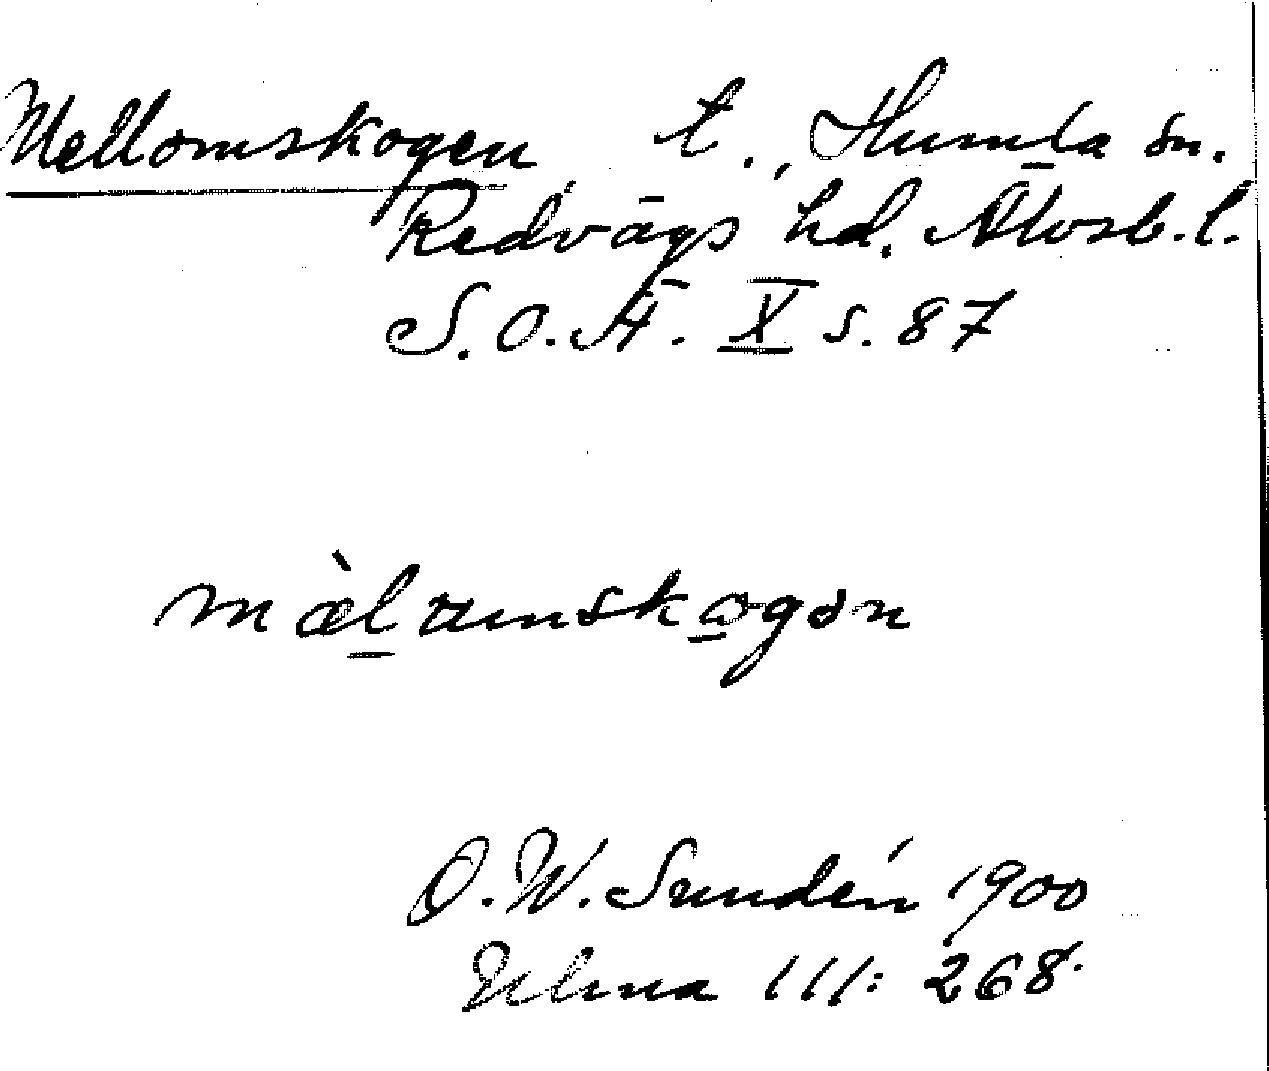 Mellomskogen t., Humla sn.
Redvägs hd. Älvsb. l.
S.O.Ä. X s. 87
mæ̀lamskogən
O.W. Sundén 1900
Ulma 111: 268.